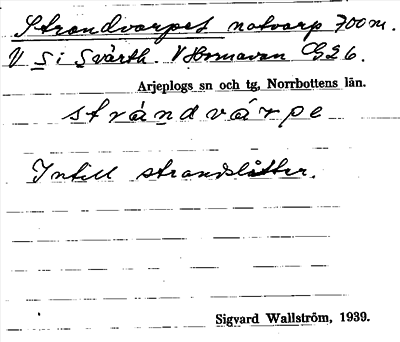 Strandvarpet notvarp 700 m.
V Si Svärth. V Hornavan G26.
Arjeplogs sn och tg, Norrbottens län.
strándvárpe
Intill strandslåtter.
Sigvard Wallström, 1939.